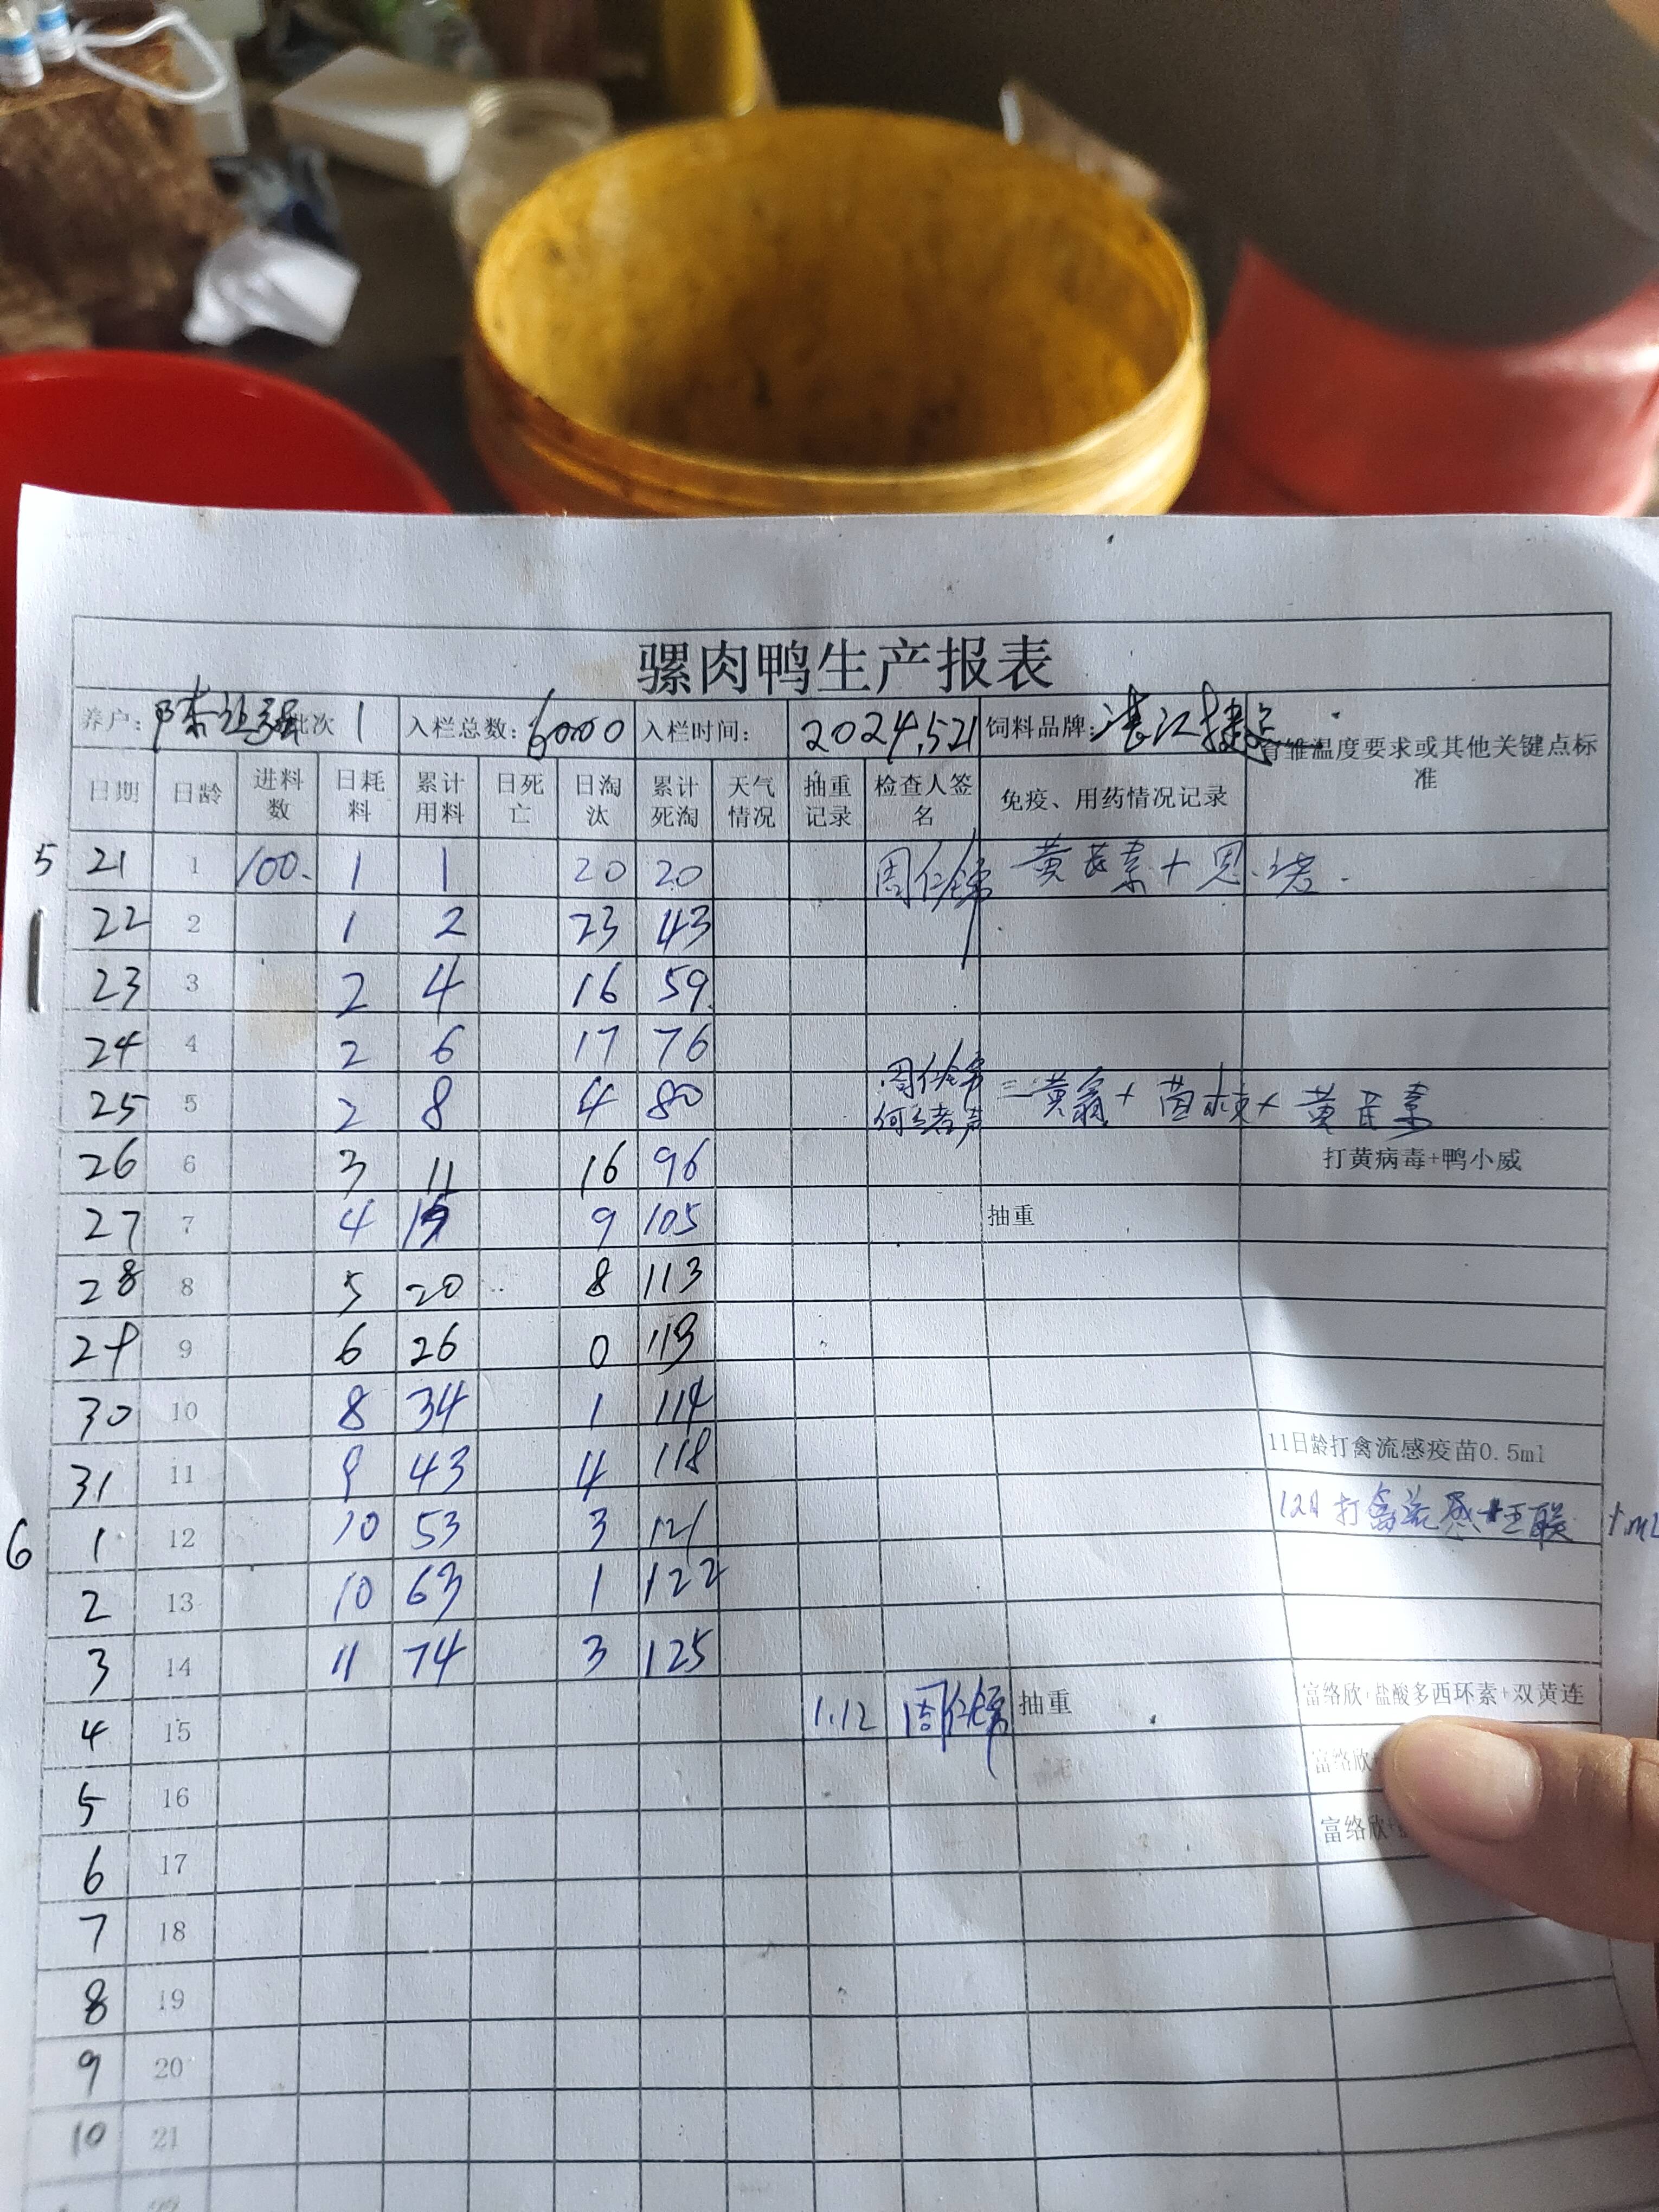 骡肉鸭生产报表
养户: 陈 强 批次 1 入栏总数: 6000 入栏时间: 2024.5.21 饲料品牌: 湛江 育雏温度要求或其他关键点标准
日期 日龄 进料数 日耗料 累计用料 日死亡 日淘汰 累计死淘 天气情况 抽重记录 检查人签名 免疫、用药情况记录
5 21 1 100. 1 1 20 20 周仁锦 黄芪素+恩诺.
22 2 1 2 23 43
23 3 2 4 16 59.
24 4 2 6 17 76 周仁锦
25 5 2 8 4 80 何 声 三黄 + + 黄芪素
26 6 3 11 16 96 打黄病毒+鸭小威
27 7 4 15 9 105 抽重
28 8 5 20 8 113
29 9 6 26 0 113
30 10 8 34 1 114
31 11 9 43 4 118 11日龄打禽流感疫苗0.5ml
6 1 12 10 53 3 121 12日打禽流感+ 联 1ml
2 13 10 63 1 122
3 14 11 74 3 125
4 15 1.12 周仁锦 抽重 富络欣+盐酸多西环素+双黄连
5 16 富络欣
6 17 富络欣+
7 18
8 19
9 20
10 21
22